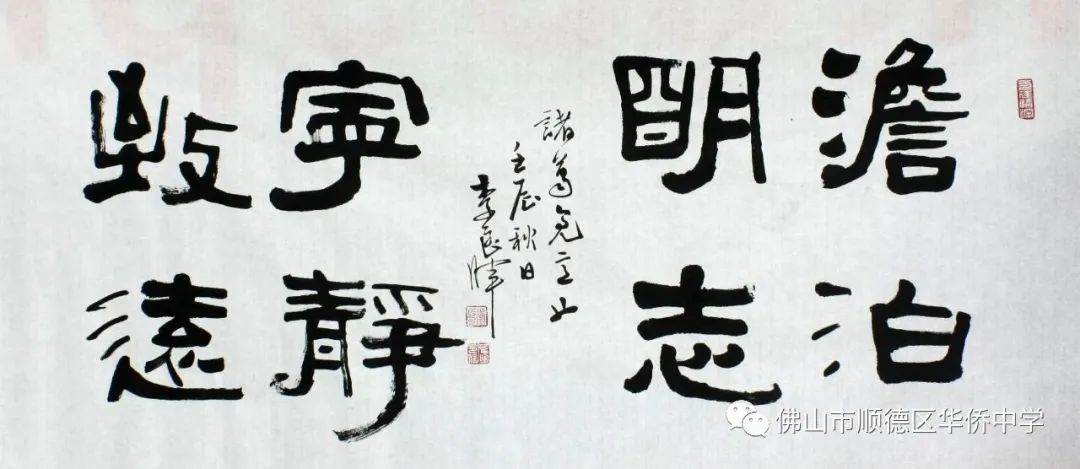 澹泊
明志
諸葛亮
壬辰秋日
李良暉
寧靜
致遠
佛山市顺德区华侨中学